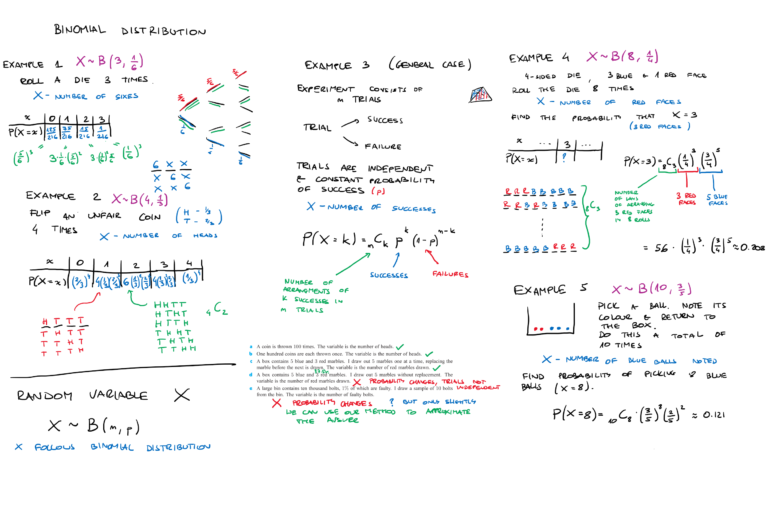 BINOMIAL DISTRIBUTION
EXAMPLE 1 X~B(3, 1/6)
ROLL A DIE 3 TIMES.
X - NUMBER OF SIXES
x 0 1 2 3
P(X=x) 125/216 75/216 15/216 1/216
(5/6)³ 3·1/6·(5/6)² 3·(1/6)²·5/6 (1/6)³
6 X X
X 6 X
X X 6
EXAMPLE 2 X~B(4, 1/3)
FLIP AN UNFAIR COIN
4 TIMES
X - NUMBER OF HEADS
x 0 1 2 3 4
P(X=x)
H T T T
T H T T
T T H T
T T T H
HHTT
HTHT
HTTH
THHT
THTH
TTHH
₄C₂
RANDOM VARIABLE X
X ~ B(n, p)
X FOLLOWS BINOMIAL DISTRIBUTION
EXAMPLE 3 (GENERAL CASE)
EXPERIMENT CONSISTS OF
n TRIALS
SUCCESS
TRIAL
FAILURE
TRIALS ARE INDEPENDENT
& CONSTANT PROBABILITY
OF SUCCESS (p)
X - NUMBER OF SUCCESSES
P(X=k) = ₙCₖ pᵏ (1-p)ⁿ⁻ᵏ
NUMBER OF
ARRANGEMENTS OF
K SUCCESSES IN
n TRIALS
SUCCESSES
FAILURES
a A coin is thrown 100 times. The variable is the number of heads.
b One hundred coins are each thrown once. The variable is the number of heads.
c A box contains 5 blue and 3 red marbles. I draw out 5 marbles one at a time, replacing the
marble before the next is drawn. The variable is the number of red marbles drawn.
d A box contains 5 blue and 3 red marbles. I draw out 5 marbles without replacement. The
variable is the number of red marbles drawn. X PROBABILITY CHANGES, TRIALS NOT INDEPENDENT
e A large bin contains ten thousand bolts, 1% of which are faulty. I draw a sample of 10 bolts
from the bin. The variable is the number of faulty bolts.
X PROBABILITY CHANGES BUT ONLY SLIGHTLY
WE CAN USE OUR METHOD TO APPROXIMATE
THE ANSWER
EXAMPLE 4 X~B(8, 1/4)
4-SIDED DIE, 3 BLUE & 1 RED FACE
ROLL THE DIE 8 TIMES
X - NUMBER OF RED FACES
FIND THE PROBABILITY THAT X=3
(3 RED FACES)
x ... 3 ...
P(X=x) ?
P(X=3) = ₈C₃ (1/4)³ (3/4)⁵
R R R B B B B B
R R B R B B B B
B B B B B R R R
₈C₃
NUMBER
OF WAYS
OF ARRANGING
3 RED FACES
IN 8 ROLLS
3 RED
FACES
5 BLUE
FACES
= 56 · (1/4)³ · (3/4)⁵ ≈ 0.208
EXAMPLE 5 X~B(10, 3/5)
PICK A BALL. NOTE ITS
COLOUR & RETURN TO
THE BOX.
DO THIS A TOTAL OF
10 TIMES
X - NUMBER OF BLUE BALLS NOTED
FIND PROBABILITY OF PICKING 8 BLUE
BALLS (X=8).
P(X=8) = ₁₀C₈ · (3/5)⁸ (2/5)² ≈ 0.121